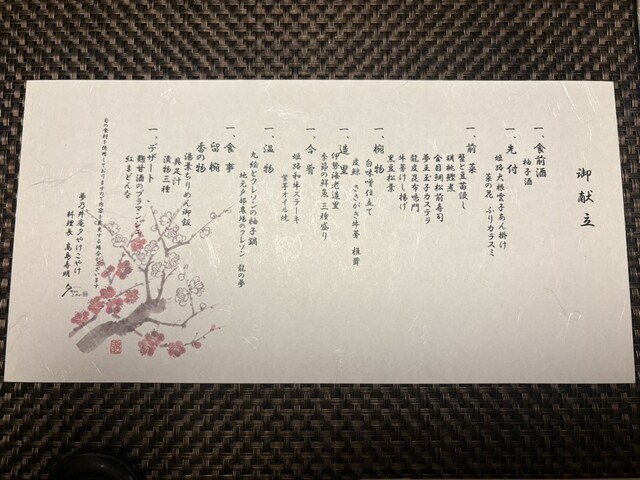 御献立
一、食前酒
柚子酒
一、先付
姫路大根雲子あん掛け
菜の花 ふりカラスミ
一、前菜
蟹と豆苗浸し
胡桃鰹煮
金目鯛松前寿司
夢王玉子カステラ
龍皮昆布鳴門
牛蒡けし揚げ
黒豆松葉
一、椀物
白味噌仕立て
皮鯨 ささがき牛蒡 椎茸
一、造里
伊勢海老造里
季節の鮮魚三種盛り
一、合肴
姫路和牛ステーキ
紫子オイル焼
一、温物
丸餅とクレソンの柚子鍋
地元戸部農場のクレソン 龍の夢
一、食事
湯葉ちりめん御飯
留椀
具足汁
香の物
漬物三種
一、デザート
麹甘酒のブラマンジェ
紅まどんな
旬の食材を使用しておりますので内容が変更する場合がございます
夢乃井庵夕やけこやけ
料理長 高島寿明